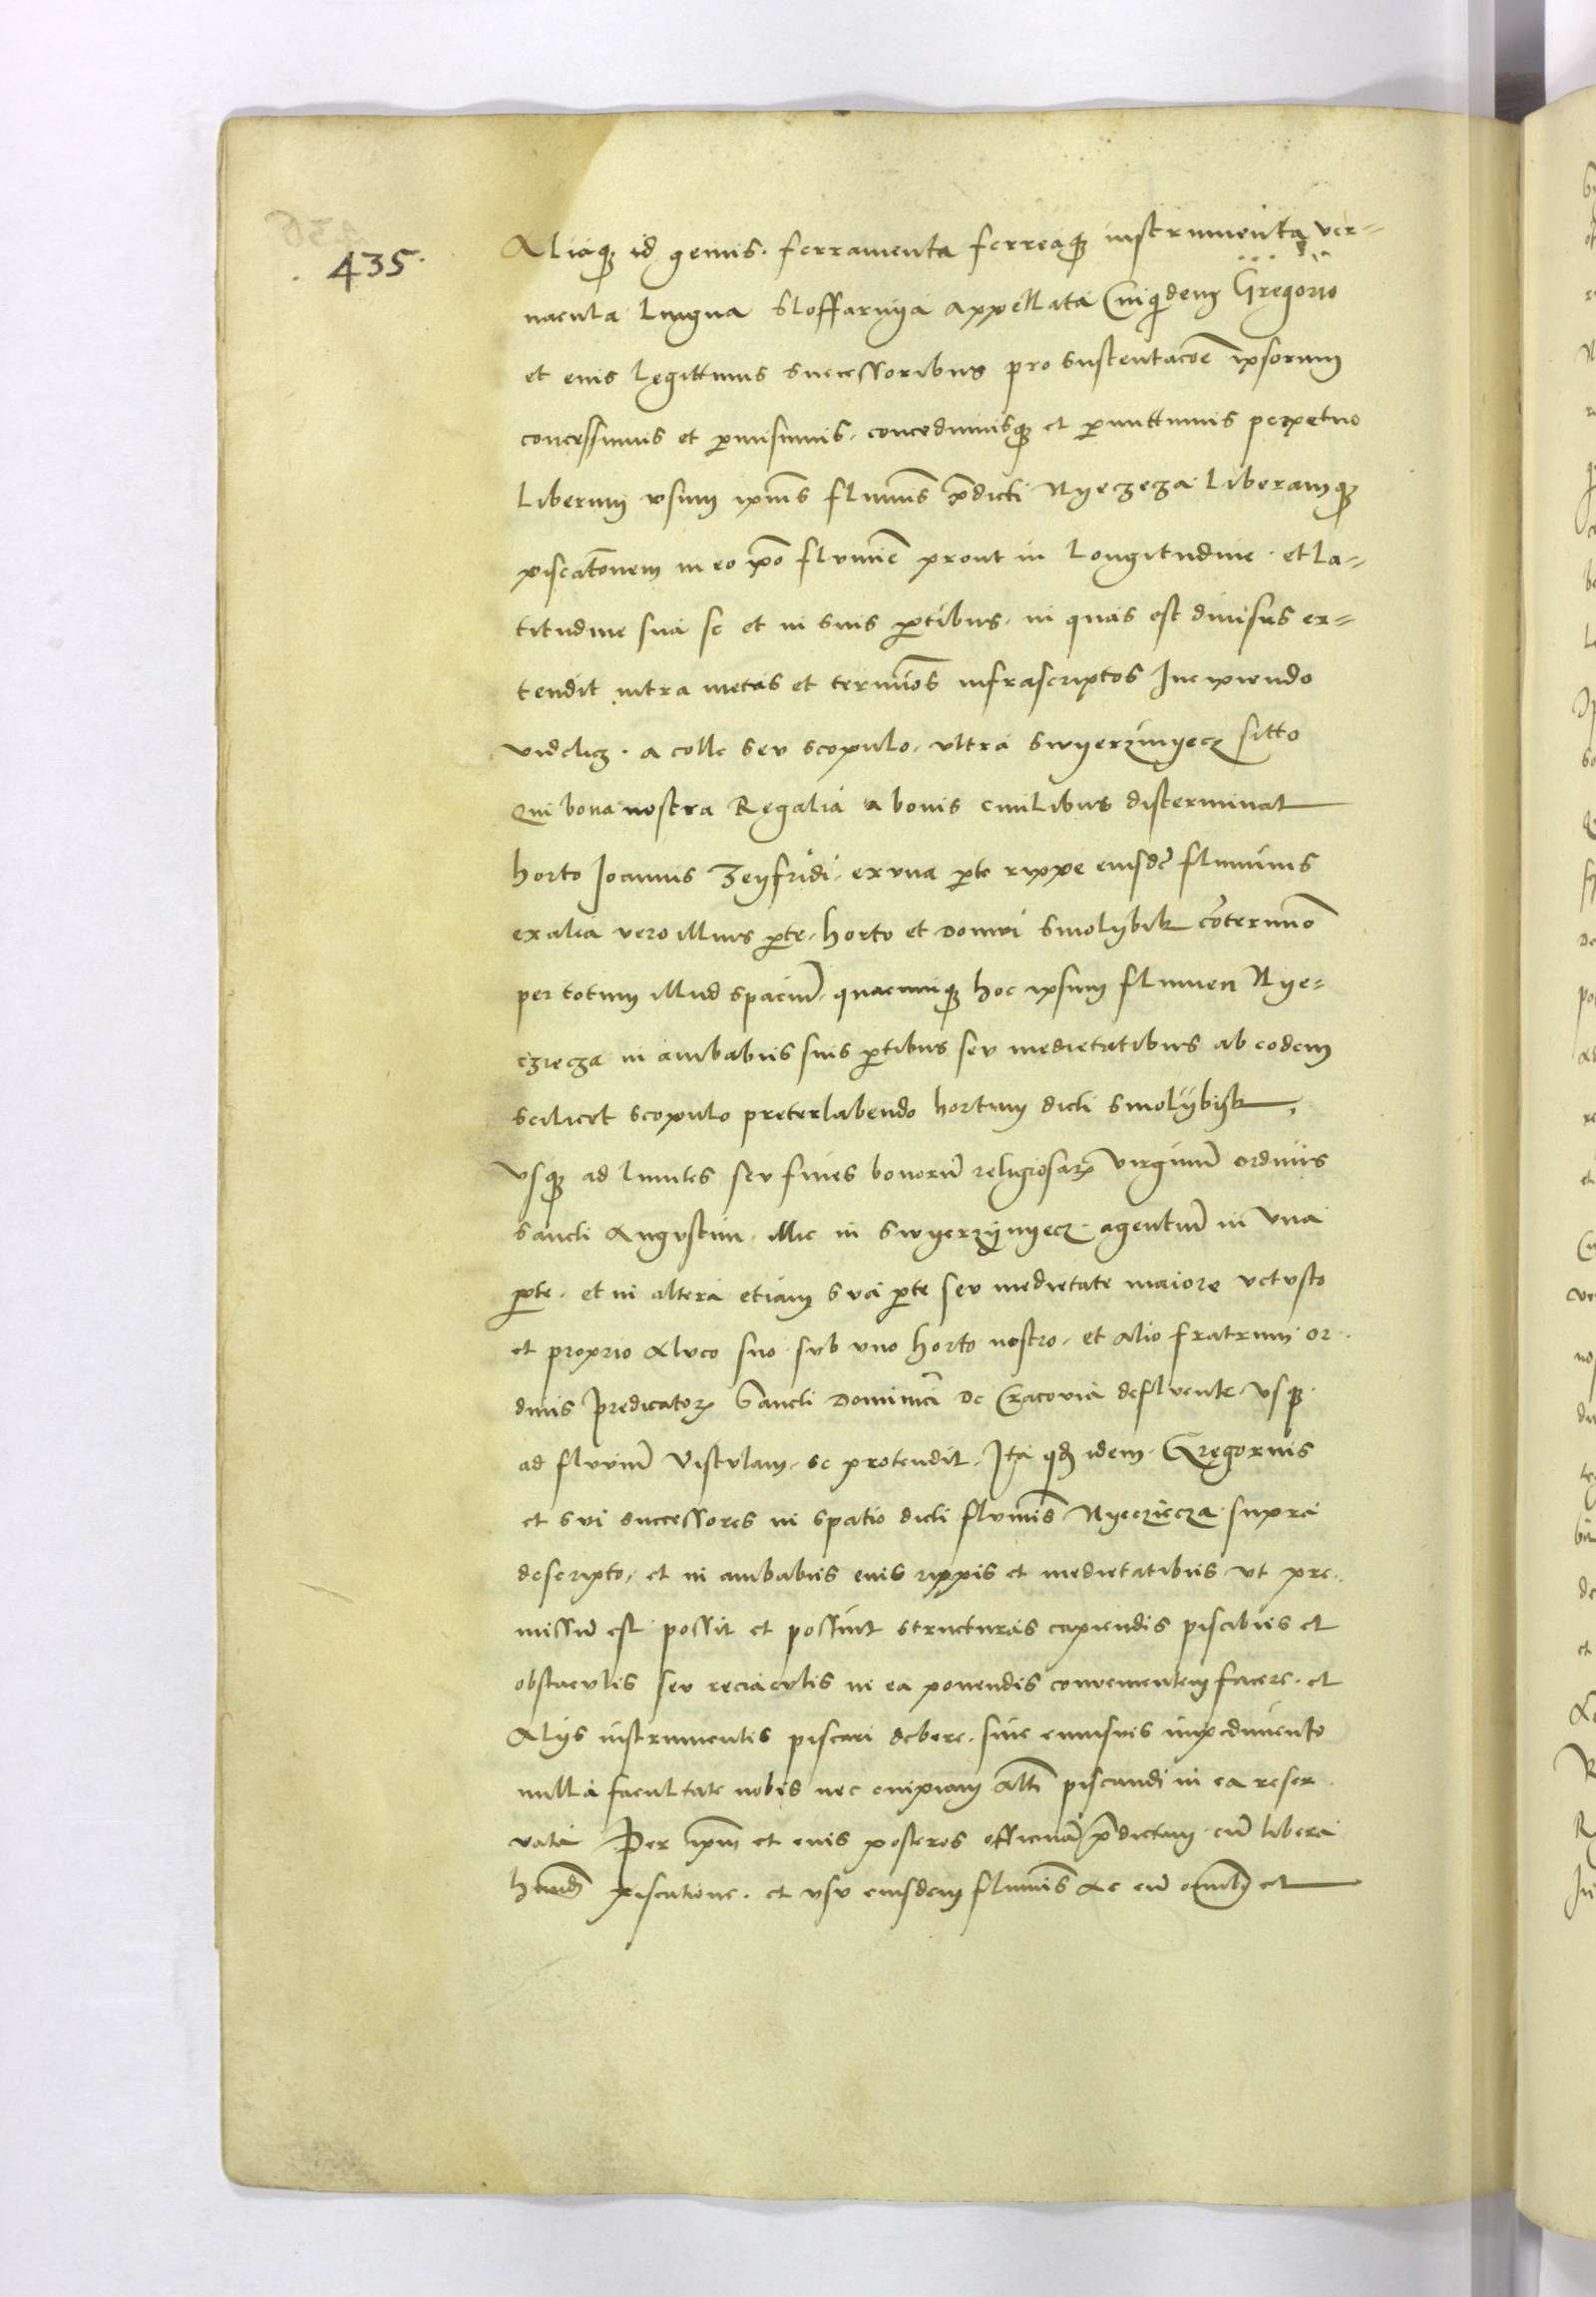 435.
Aliaq₃ id genus. ferramenta ferreaq₃ instrumenta ver=
nacula lingua Sloffarnya appellata Cuiquidem Gregorio
et eius legittimis successoribus pro sustentacōe ipsorum
concessimus et p̱misimus. concedimusq₃ et p̱mittimus perpetuo
Liberum vsum ipsius fluminis p̄dicti Nyeczecza Liberamq₃
piscatōnem in eo ip̄o flumīe prout in Longitudine. et la=
titudine sua se et in suis p̱tibus. in quas est diuisus ex=
tendit intra metas et termīos infrascriptos Incipiendo
videlicz. a colle seu scopulo. vltra Swyerzinyecz sitto
Qui bona nostra Regalia a bonis ciuilibus disterminat
horto Joannis Zeyfridi. ex vna p̱te rippe eiusdē fluminis
ex alia vero illius p̱te. horto et domui Smolybik cōtermīo
per totum illud spaciū. quacumq₃ hoc ipsum flumen Nye=
czecza in ambabus suis p̱tibus seu medietatibus ab eodem
scilicet scopulo preterlabendo hortum dicti Smolybik,
vsq₃ ad limites seu fines bonorū religiosaꝝ virginū ordinis
Sancti Augustini. illic in Swyerzynyecz. agentiū in vna
p̱te. et in altera etiam sua p̱te seu medietate maiore vetusto
et proprio alueo suo. sub vno horto nostro. et alio fratrum or..
dinis predicatoꝝ Sancti Dominici de Cracouia defluente vsq₃
ad fluuiū Vistulam. se protendit. Ita qd idem. Gregorius
et sui successores in spatio dicti fluminis Nyeczecza. supra
descripto. et in ambabus eius rippis et medietatibus vt pre..
missū est possit et possint structuras capiendis piscibus et
obstaculis seu reciaculis in ea ponendis conuenientem facere. et
Alijs instrumentis piscari debere. sine cuiusuis impedimento
nulla facultate nobis nec cuipiam altī piscandi in ea reser.
uata Per ip̄m et eius posteros officinā p̄dictam cū libera
hmōi piscatione. et vsu eiusdem fluminis ac cū omībꝫ et